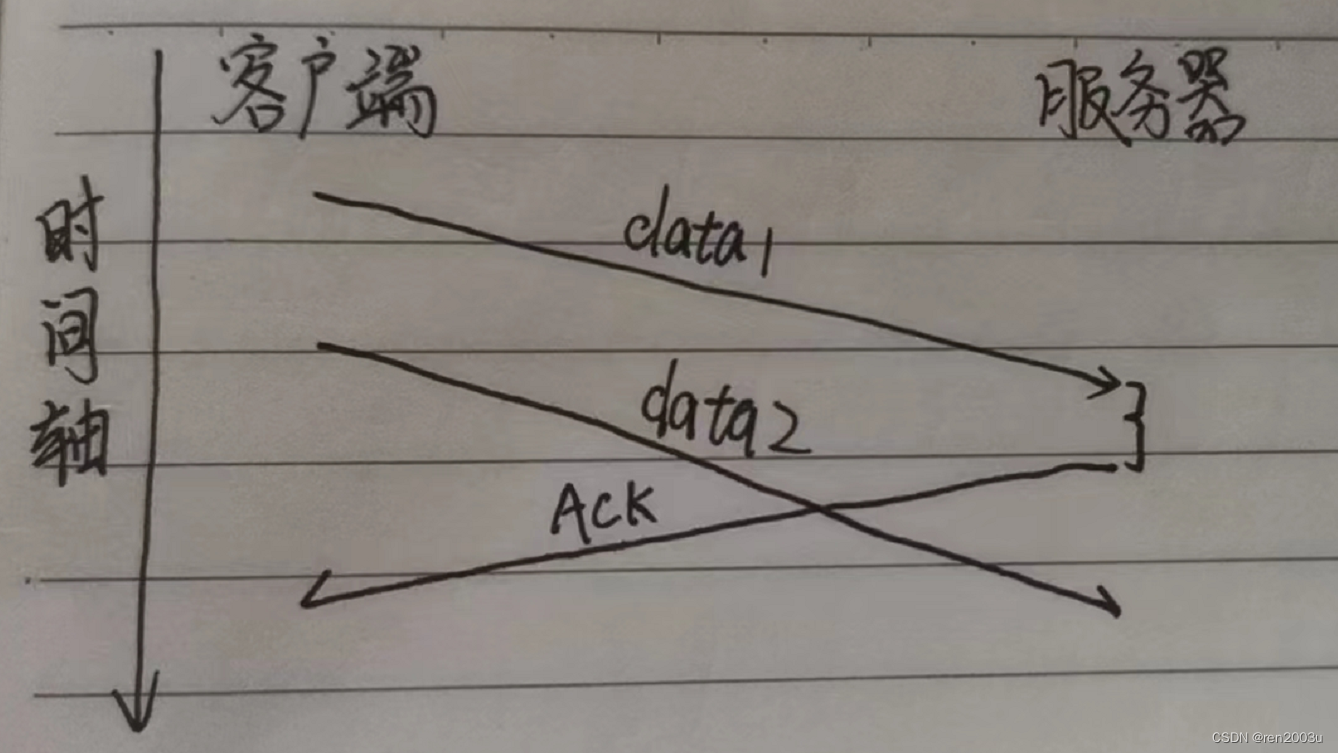 客户端
服务器
时间轴
data1
data2
Ack
CSDN @ren2003u